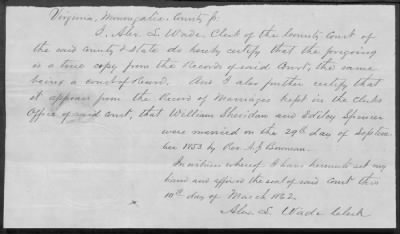 Virginia, Monongalia County ss.
I, Alex. L. Wade, Clerk of the County Court of
the said county & state do hereby certify that the foregoing
is a true copy from the Records of said Court, the same
being a court of Record. And I also further certify that
it appears from the Record of Marriages kept in the Clerks
Office of said court, that William Sheridan and Spencer
were married on the 29th day of Septem
ber 1853 by Rev. A. J. Bowman.
In witness whereof I have hereunto set my
hand and affixed the seal of said court this
10th day of March 1862.
Alex. L. Wade Clerk